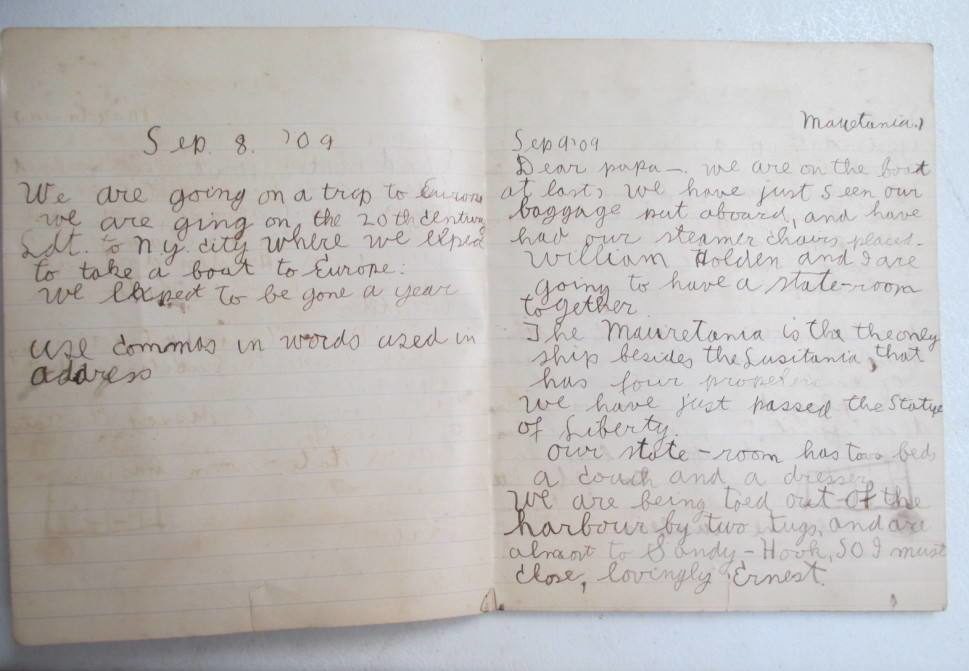 Sep. 8. '09
We are going on a trip to Europe
we are ging on the 20th century
Ldt. to N.y. city where we expect
to take a boat to Europe.
we expect to be gone a year
use commas in words used in
address
Mauetania.)
Sep 9 '09
Dear papa — we are on the boat
at last, we have just seen our
baggage put aboard, and have
had our steamer chairs placed.
William Holden and I are
going to have a state-room
together.
The Mauretania is the theonly
ship besides the Lusitania, that
has four propelers
We have just passed the Statye
of Liberty.
our state-room has two beds
a couch and a dresser
We are being toed out of the
harbour by two tugs, and are
almost to Sandy-Hook, so I must
close, lovingly Ernest.